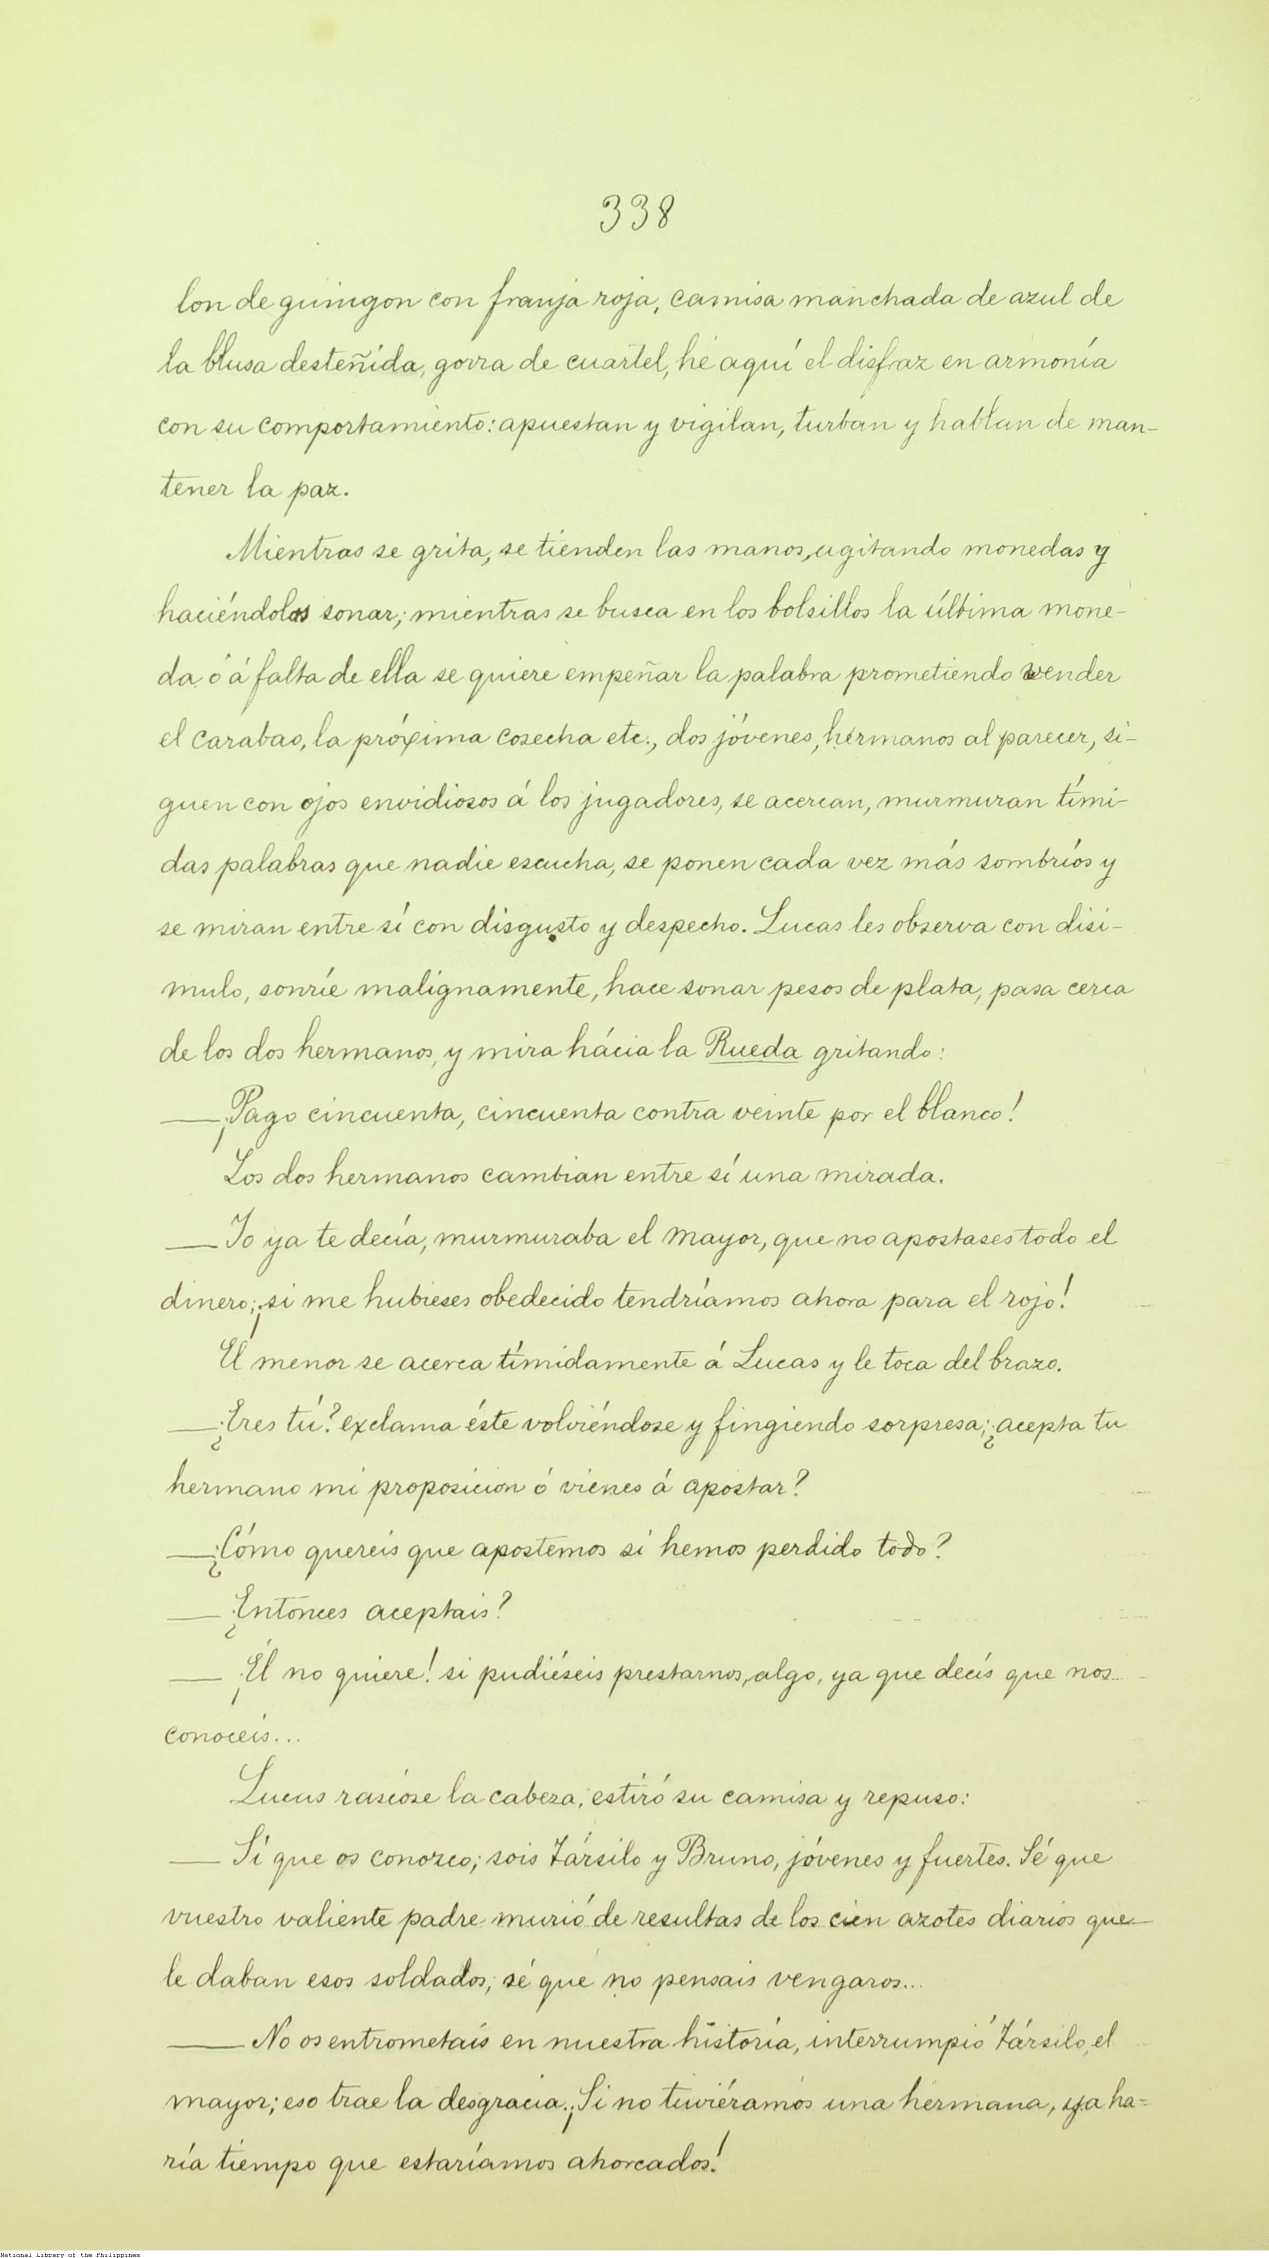 338
lon de guingon con franja roja, camisa manchada de azul de
la blusa desteñida, gorra de cuartel, hé aquí el disfraz en armonía
con su comportamiento: apuestan y vigilan, turban y hablan de man-
tener la paz.
Mientras se grita, se tienden las manos, agitando monedas y
haciéndolas sonar; mientras se busca en los bolsillos la última mone-
da ó á falta de ella se quiere empeñar la palabra prometiendo vender
el carabao, la próxima cosecha etc., dos jóvenes, hermanos al parecer, si-
guen con ojos envidiosos á los jugadores, se acercan, murmuran tími-
das palabras que nadie escucha, se ponen cada vez más sombríos y
se miran entre sí con disgusto y despecho. Lucas les observa con disi-
mulo, sonríe malignamente, hace sonar pesos de plata, pasa cerca
de los dos hermanos, y mira hácia la Rueda gritando:
—¡Pago cincuenta, cincuenta contra veinte por el blanco!
Los dos hermanos cambian entre sí una mirada.
—Yo ya te decía, murmuraba el mayor, que no apostases todo el
dinero; ¡si me hubieses obedecido tendríamos ahora para el rojo!
El menor se acerca tímidamente á Lucas y le toca del brazo.
—¿Eres tú? exclama éste volviéndose y fingiendo sorpresa; ¿acepta tu
hermano mi proposicion ó vienes á apostar?
—¿Cómo quereis que apostemos si hemos perdido todo?
—¿Entonces aceptais?
—¡Él no quiere! si pudiéseis prestarnos, algo, ya que decís que nos
conoceis...
Lucas rascóse la cabeza, estiró su camisa y repuso:
—Sí que os conozco; sois Társilo y Bruno, jóvenes y fuertes. Sé que
vuestro valiente padre murió de resultas de los cien azotes diarios que
le daban esos soldados; sé que no pensais vengaros...
—No os entrometais en nuestra historia, interrumpió Társilo, el
mayor; eso trae la desgracia. ¡Si no tuviéramos una hermana, ya ha-
ría tiempo que estaríamos ahorcados!
National Library of the Philippines